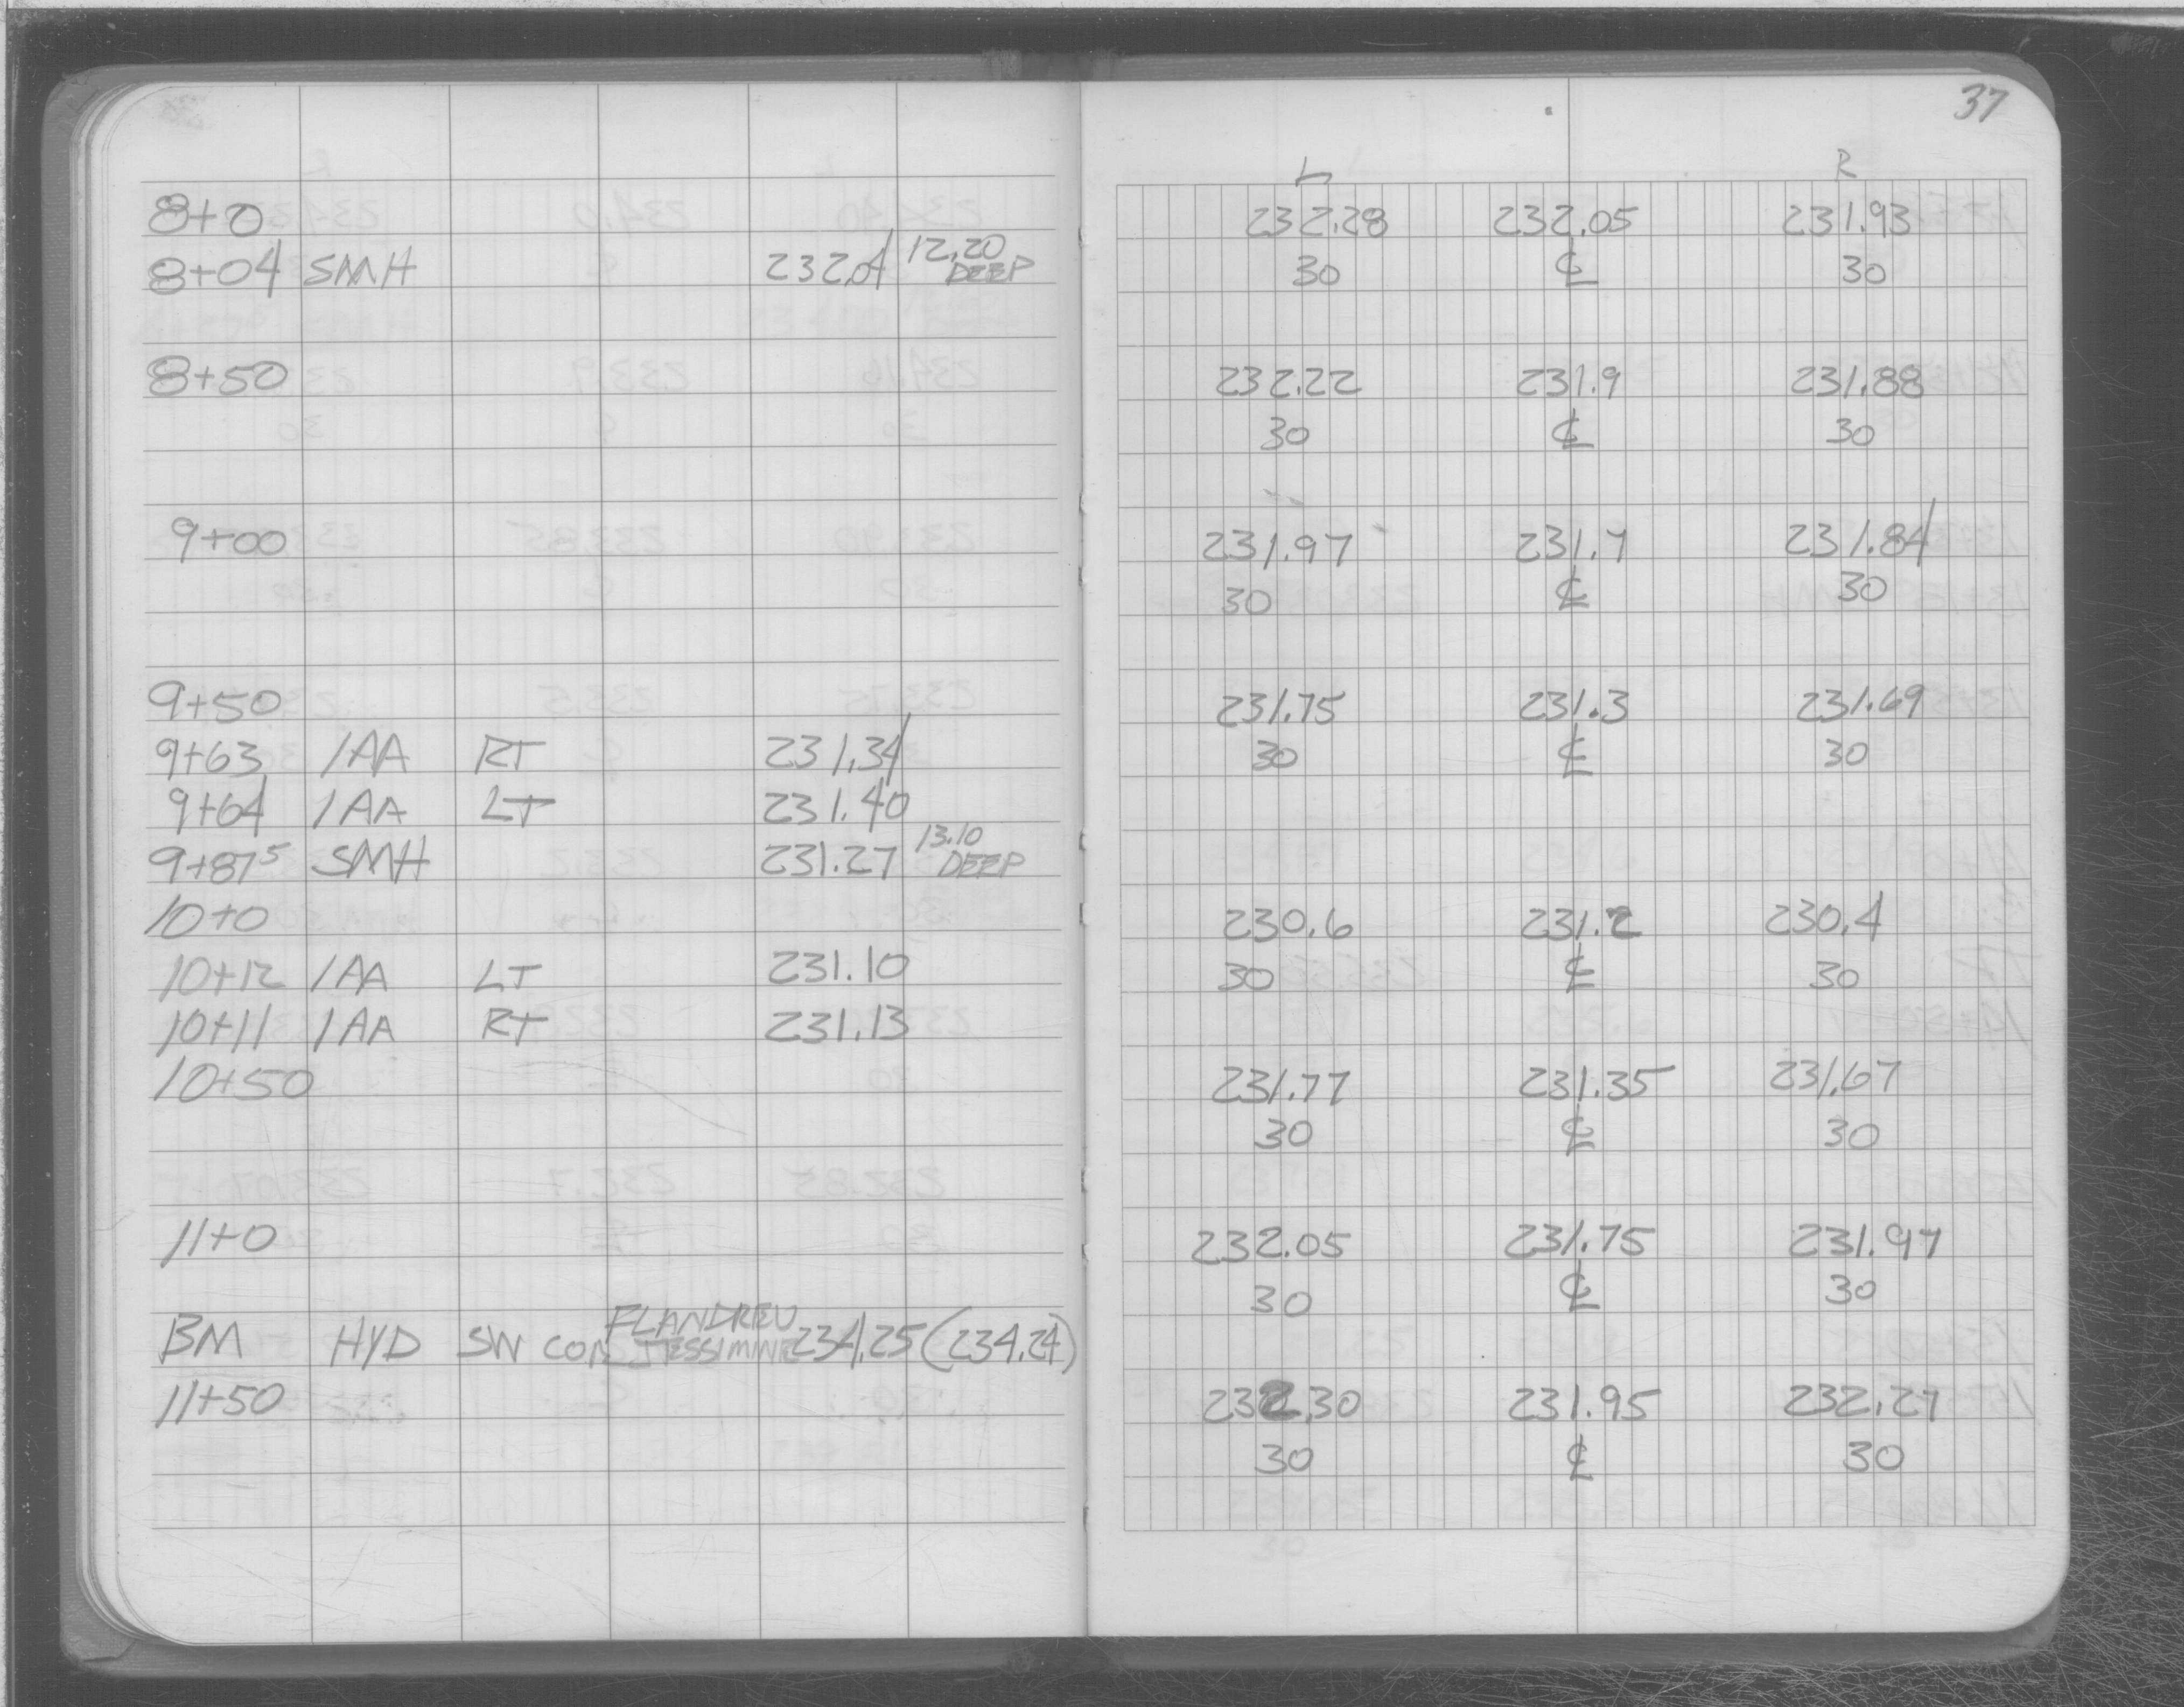 37
L R
8+0 232.28 232.05 231.93
8+04 SMH 232.04 12.20 DEEP 30 ℄ 30
8+50 232.22 231.9 231.88
30 ℄ 30
9+00 231.97 231.7 231.84
30 ℄ 30
9+50 231.75 231.3 231.69
9+63 1AA RT 231.34 30 ℄ 30
9+64 1AA LT 231.40
9+87⁵ SMH 231.27 13.10 DEEP
10+0 230.6 231.2 230.4
10+12 1AA LT 231.10 30 ℄ 30
10+11 1AA RT 231.13
10+50 231.77 231.35 231.67
30 ℄ 30
11+0 232.05 231.75 231.97
30 ℄ 30
BM HYD SW COR FLANDREU JESSIMINE 234.25 (234.24)
11+50 232.30 231.95 232.27
30 ℄ 30